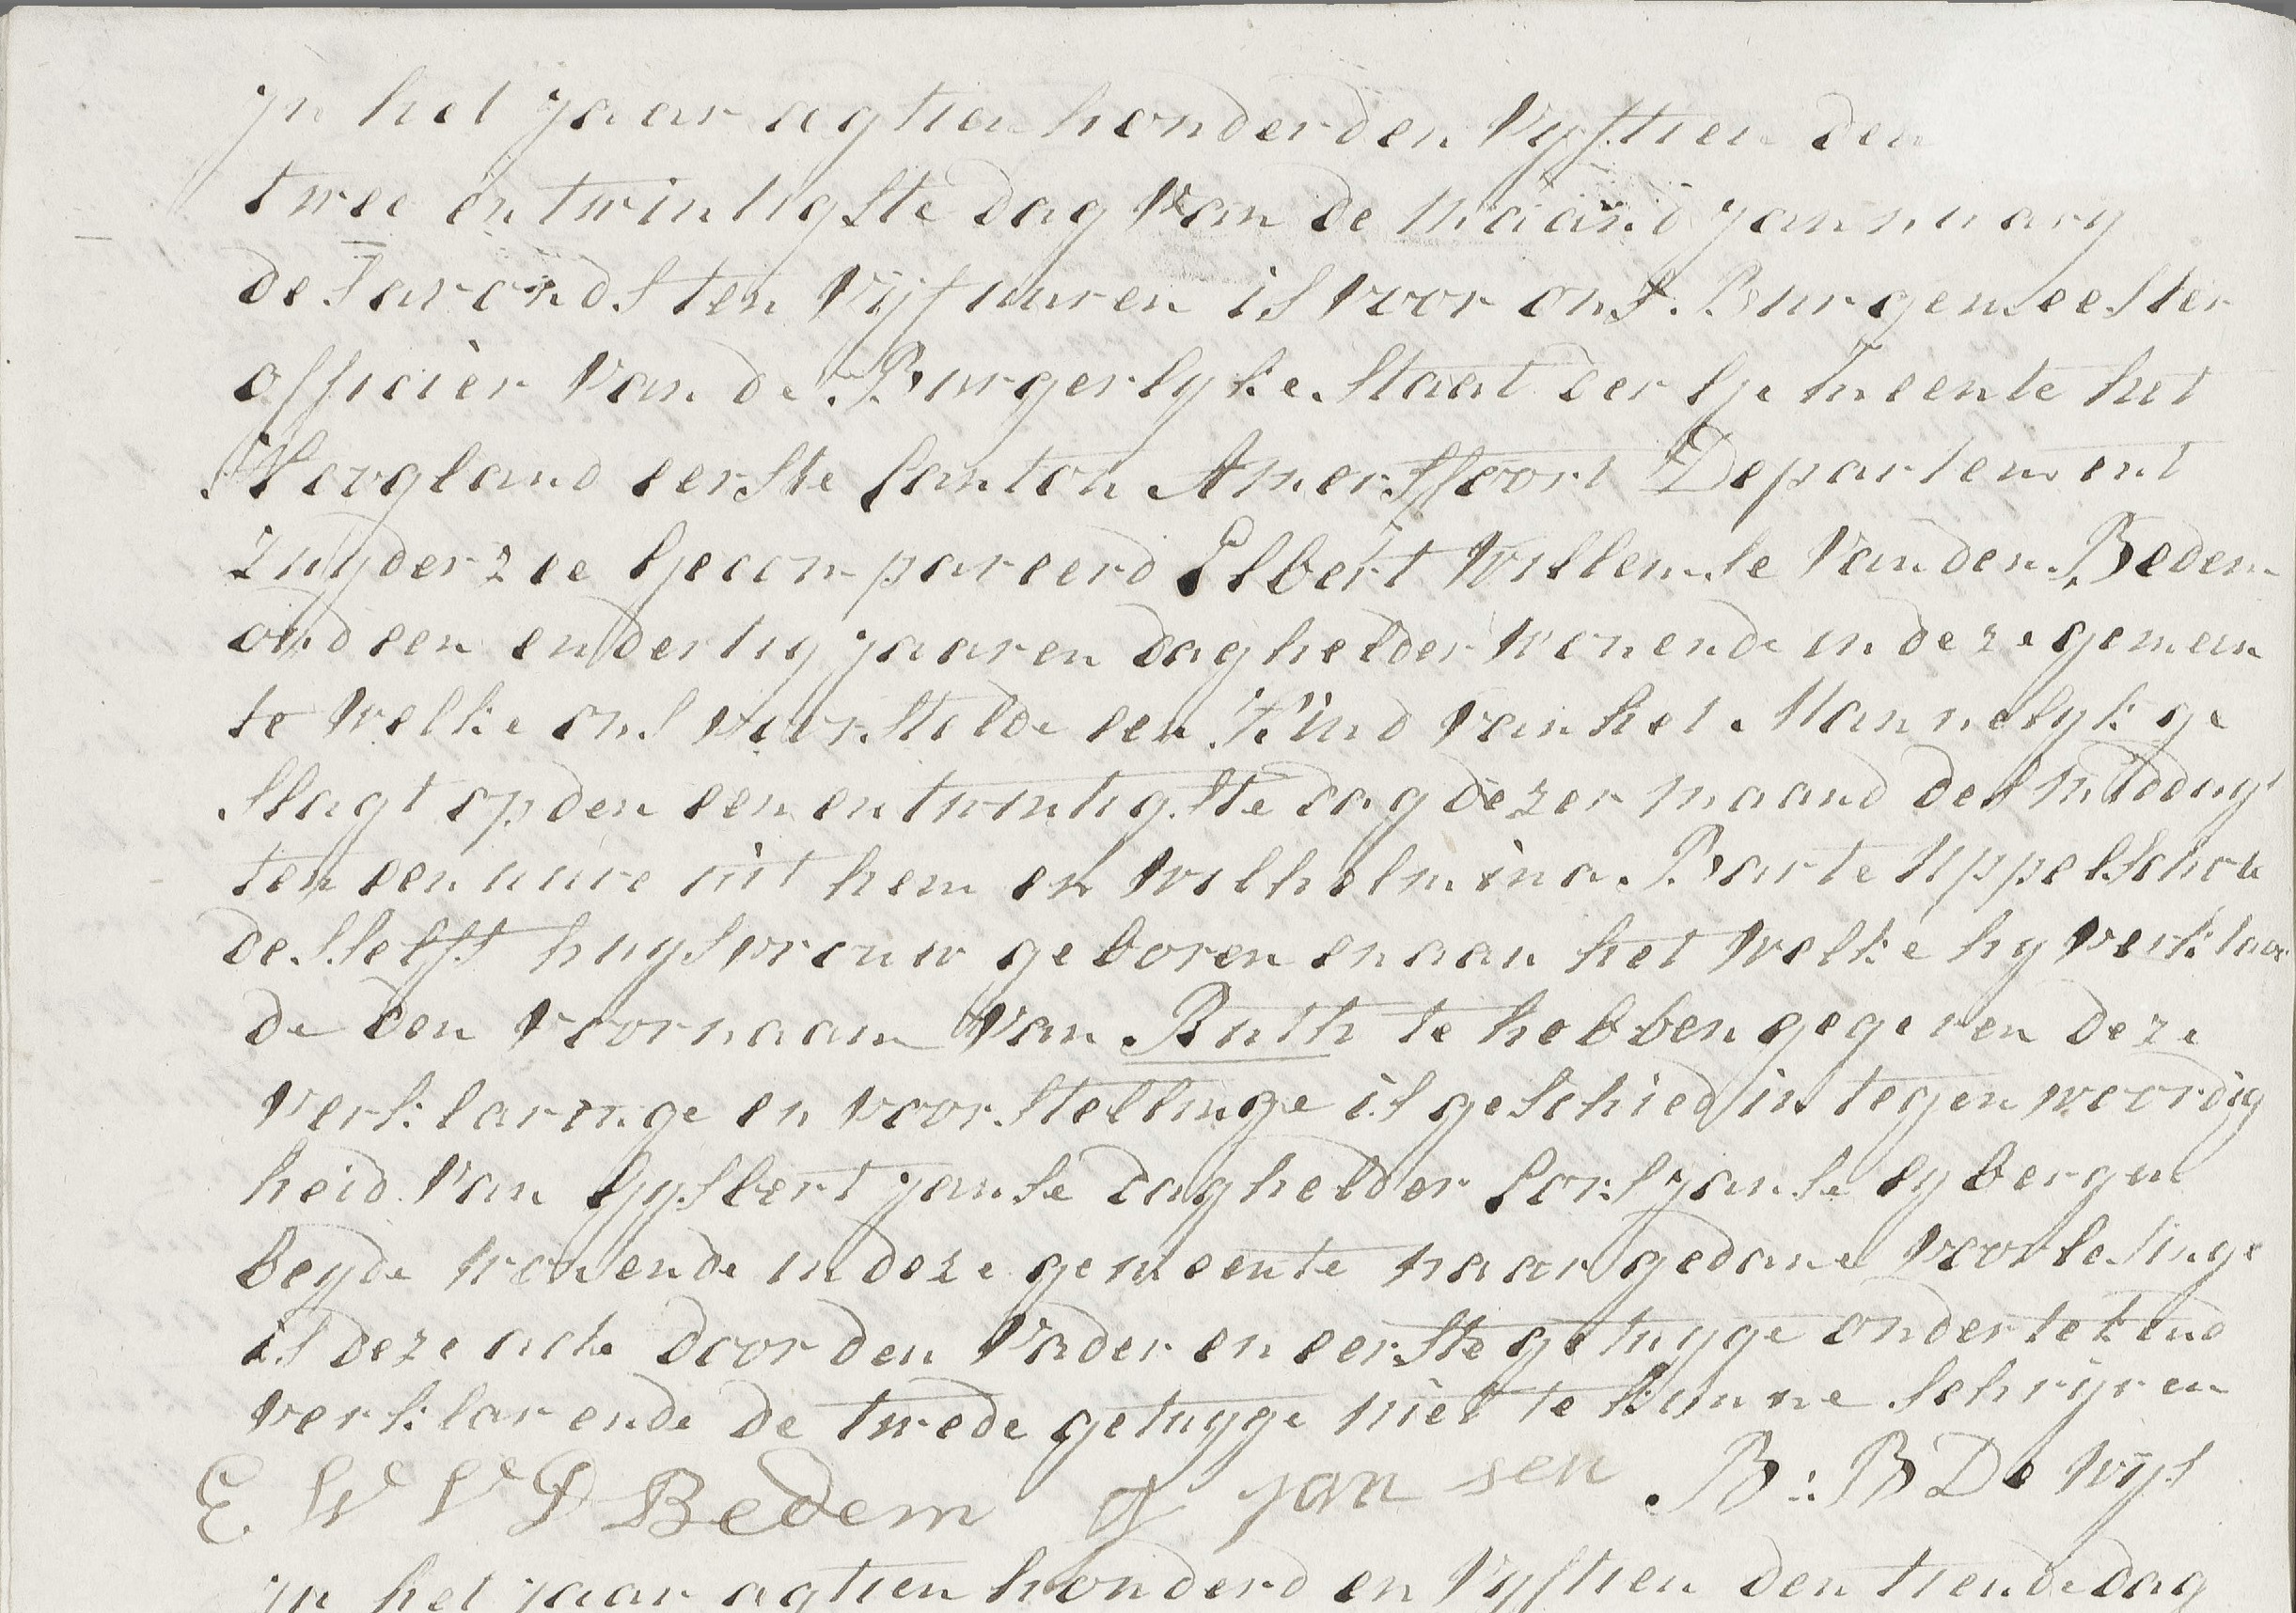 jn het jaar agtien honderd en Vyftien den
twee en twintigste dag van de maand jannuary
des avonds ten Vijf uuren is voor ons Burgemeester
officier van de Burgerlyke Staat der Gemeente het
Hoogland eerste Canton Amersffoort Departement
Zuyderzee Gecompareerd Elbert Willemse van den Bedem
oud een en dertig jaaren daghelder wonende in deze gemeen
te welke ons voorstelde een Kind van het Mannelyk ge
slagt op den een en twintigste dag dezer maand des middags
ten een uure uit hem en Wilhelmina Barte Uppelschote
desselfs huysvrouw geboren en aan het welke hy verklaar
de den voornaam van Ruth te hebben gegeven deze
verklaringe en voorstellinge is geschied in tegenwoordig
heid van Gysbert janse daghelder Cors janse Eybergen
beyde wonende in deze gemeente naar gedane voorlesinge
is deze acte door den Vader en eerste getuyge ondertekend
verklarende de twede getuyge niet te kunne schrijven
E W V D Bedem G jan sen B: B De Wijs
jn het jaar agtien honderd en Vyftien den tiende dag